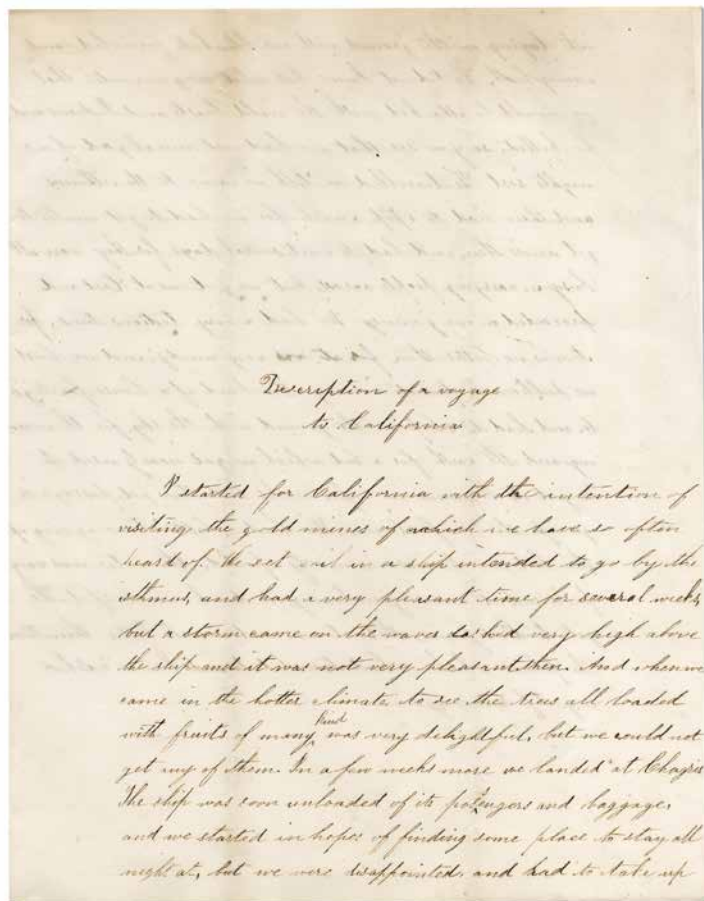 Description of a voyage
to California
I started for California with the intention of
visiting the gold mines of which we have so often
heard of. We set sail in a ship intended to go by the
isthmus, and had a very pleasant time for several weeks,
but a storm came on the waves lashed very high above
the ship and it was not very pleasant then. And when we
came in the hotter climate to see the trees all loaded
with fruits of many kind was very delightful, but we could not
get any of them. In a few weeks more we landed at Chagres
The ship was soon unloaded of its passengers and baggage,
and we started in hopes of finding some place to stay all
night at, but we were disappointed and had to take up